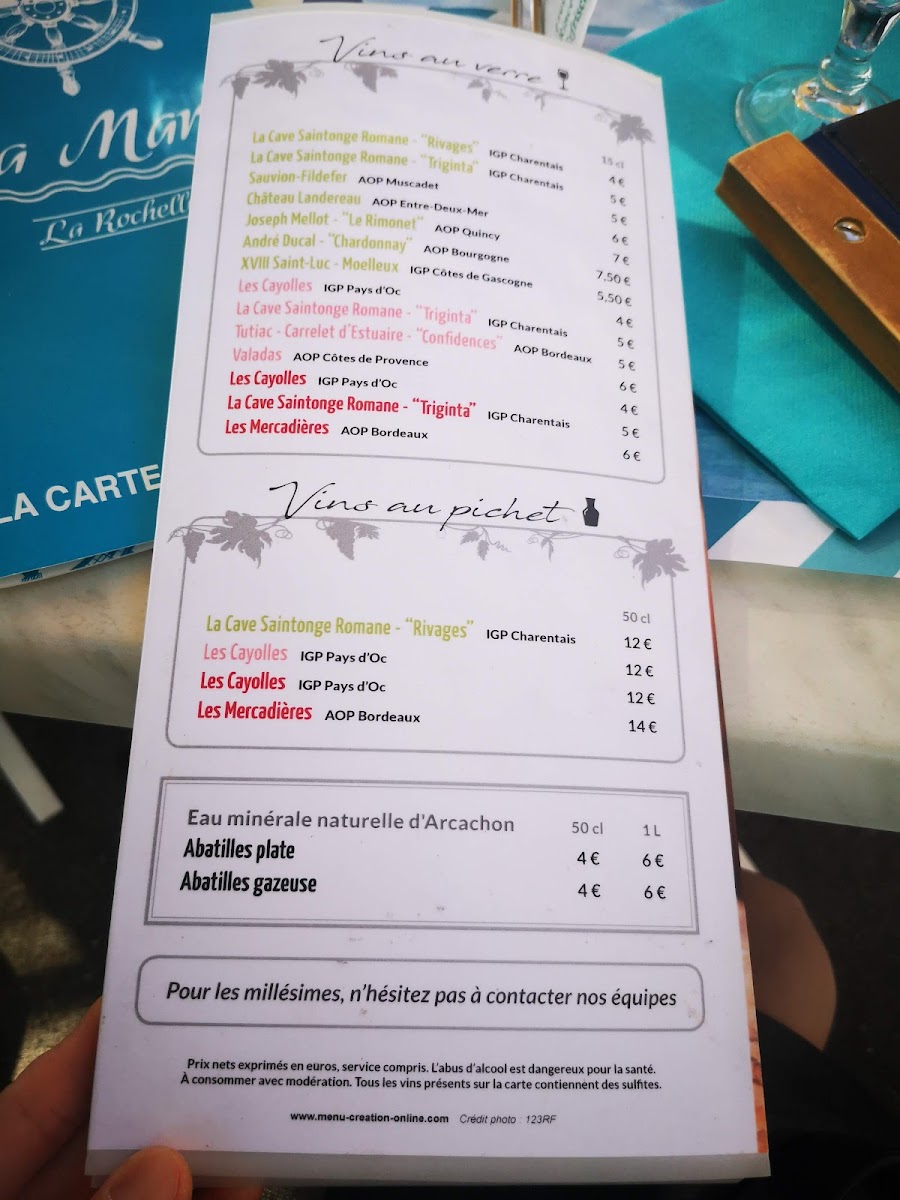 La Rochell
LA CARTE
Vins au verre
15 cl
La Cave Saintonge Romane - "Rivages" IGP Charentais 4 €
La Cave Saintonge Romane - "Triginta" IGP Charentais 5 €
Sauvion-Fildefer AOP Muscadet 5 €
Château Landereau AOP Entre-Deux-Mer 6 €
Joseph Mellot - "Le Rimonet" AOP Quincy 7 €
André Ducal - "Chardonnay" AOP Bourgogne 7,50 €
XVIII Saint-Luc - Moelleux IGP Côtes de Gascogne 5,50 €
Les Cayolles IGP Pays d'Oc 4 €
La Cave Saintonge Romane - "Triginta" IGP Charentais 5 €
Tutiac - Carrelet d'Estuaire - "Confidences" AOP Bordeaux 5 €
Valadas AOP Côtes de Provence 6 €
Les Cayolles IGP Pays d'Oc 4 €
La Cave Saintonge Romane - "Triginta" IGP Charentais 5 €
Les Mercadières AOP Bordeaux 6 €
Vins au pichet
50 cl
La Cave Saintonge Romane - "Rivages" IGP Charentais 12 €
Les Cayolles IGP Pays d'Oc 12 €
Les Cayolles IGP Pays d'Oc 12 €
Les Mercadières AOP Bordeaux 14 €
Eau minérale naturelle d'Arcachon 50 cl 1 L
Abatilles plate 4 € 6 €
Abatilles gazeuse 4 € 6 €
Pour les millésimes, n'hésitez pas à contacter nos équipes
Prix nets exprimés en euros, service compris. L'abus d'alcool est dangereux pour la santé.
À consommer avec modération. Tous les vins présents sur la carte contiennent des sulfites.
www.menu-creation-online.com Crédit photo : 123RF